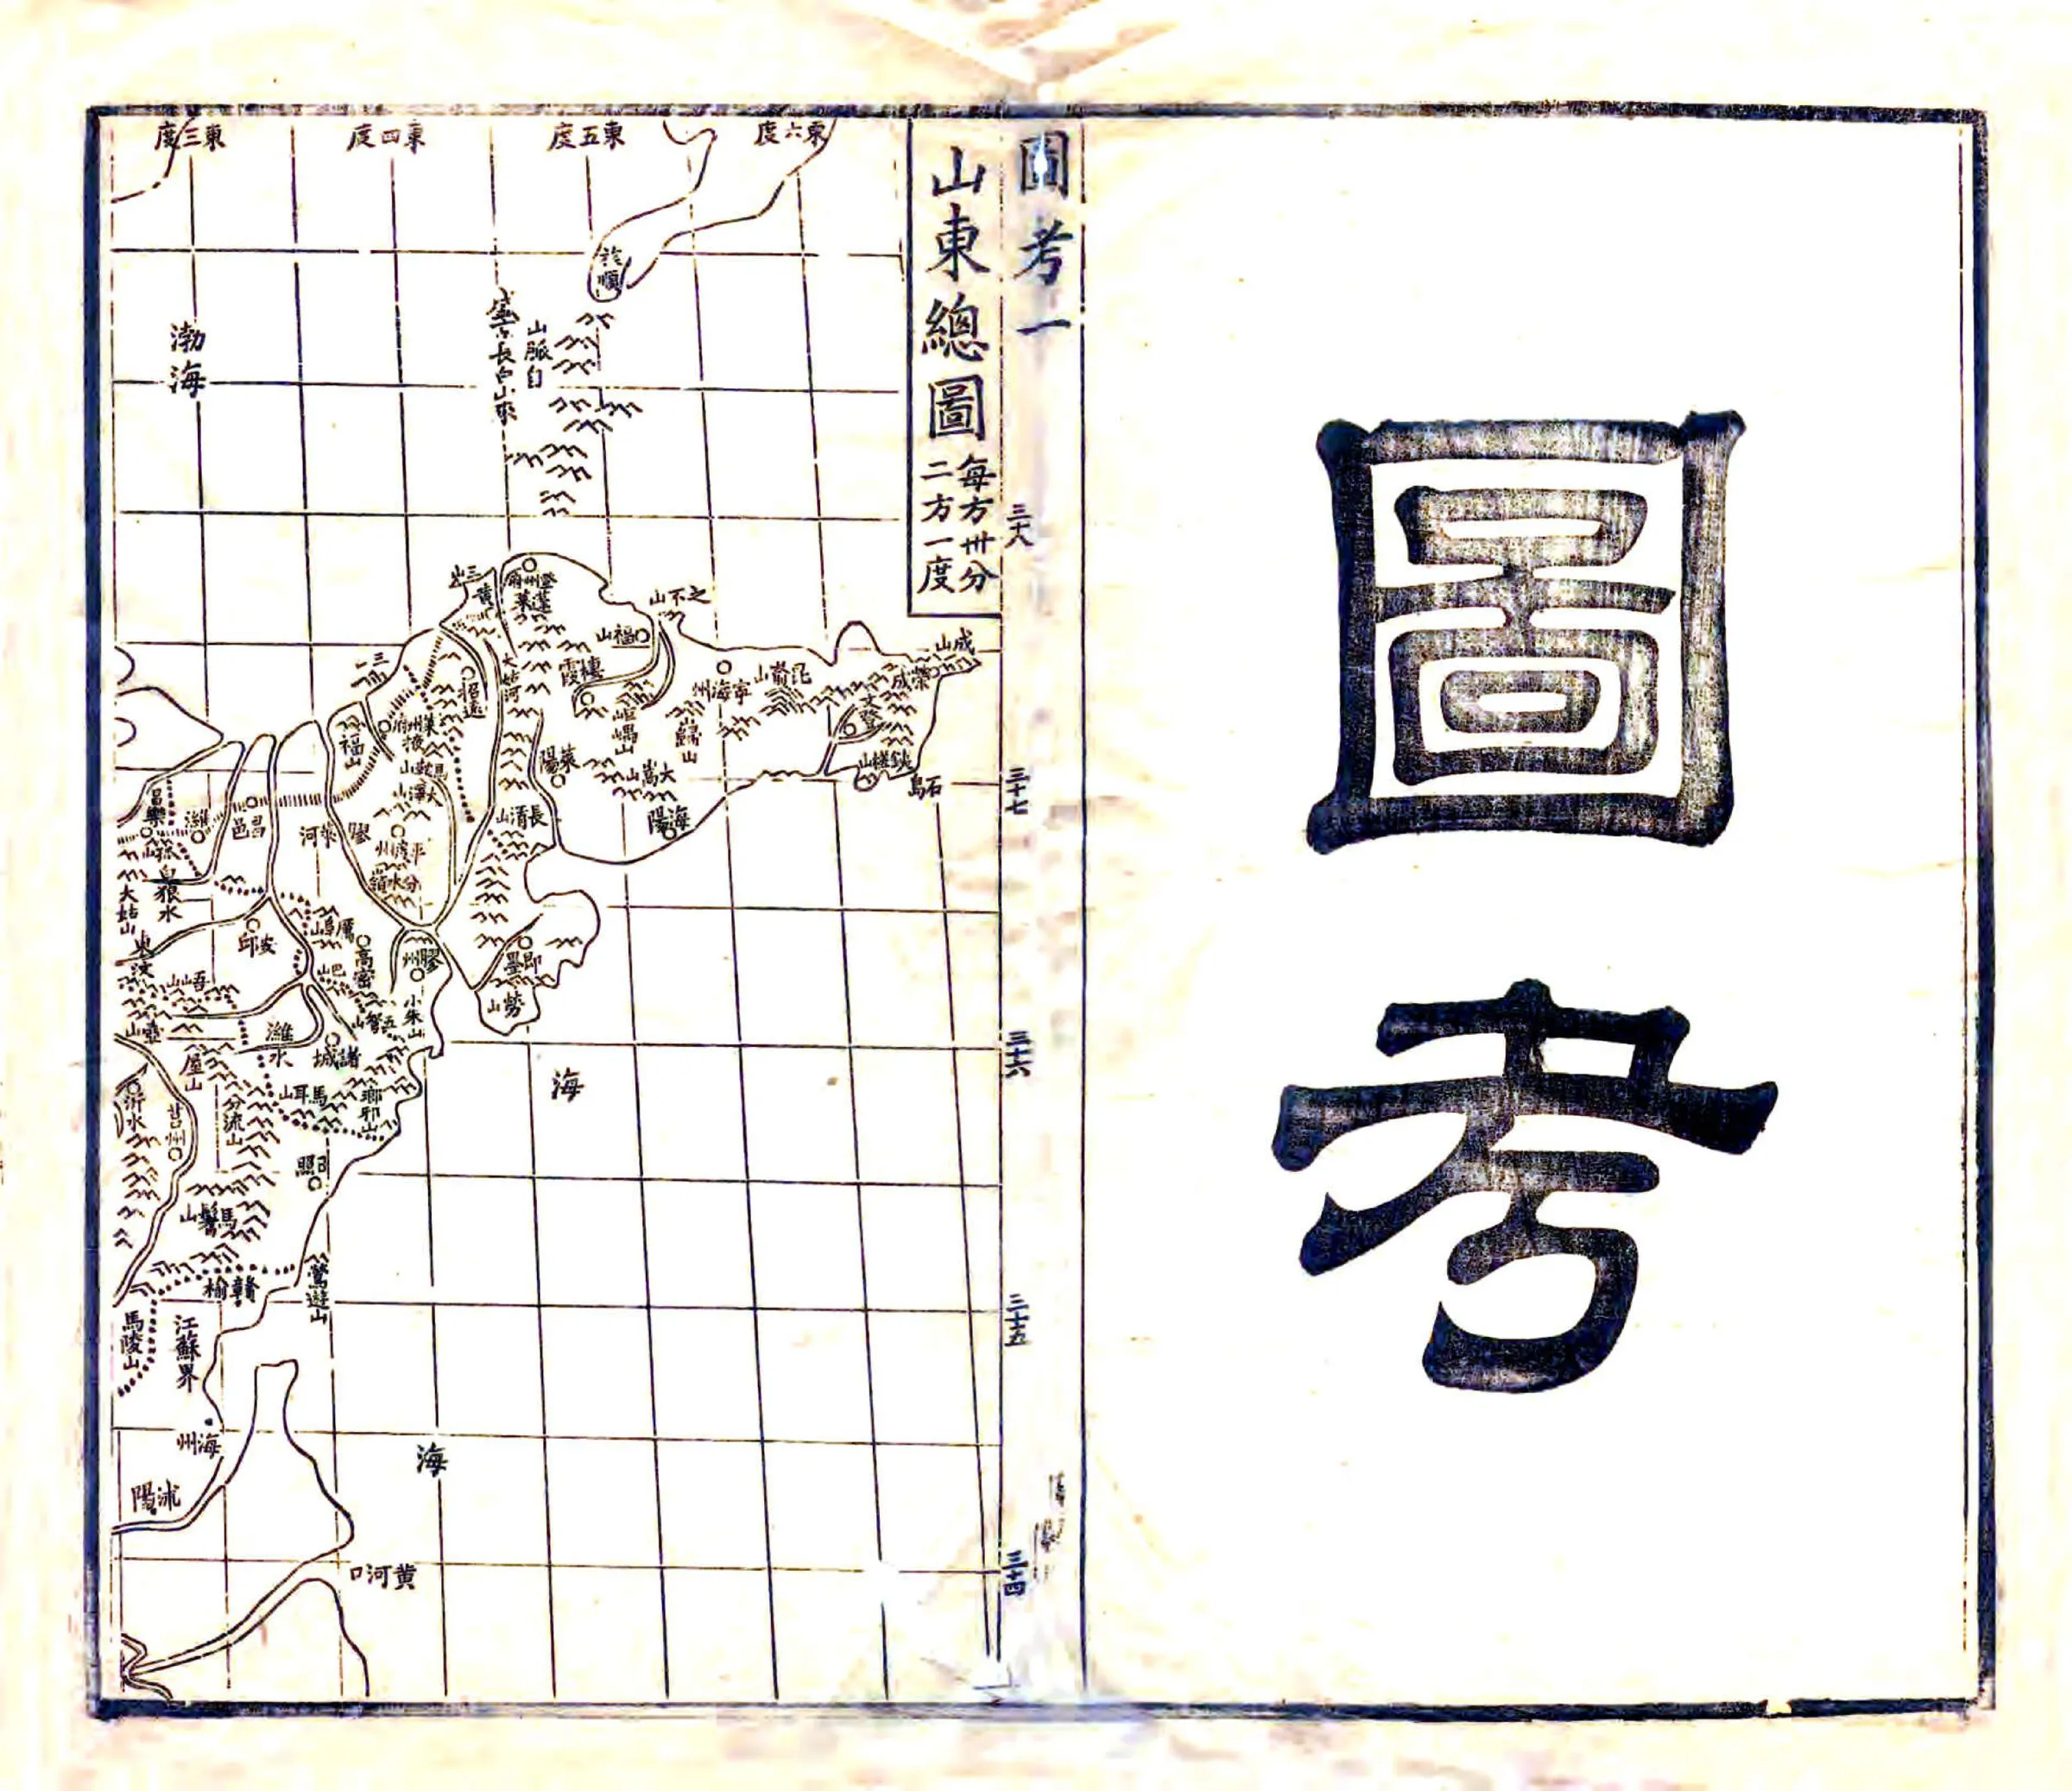 圖考
圖考一
山東總圖
每方卅分
二方一度
東六度
東五度
東四度
東三度
三十八
三十七
三十六
三十五
三十四
旅順
山脈自
盛京長白山來
渤海
登州府
蓬萊
黃
三山
之不山
福山
棲霞
成山
榮成
昆嵛山
寧海州
文登
鐵槎山
石島
岠嵎山
大姑河
招遠
萊州府
掖
福山
萊陽
大嵩山
海陽
長清山
大澤山
平度州
分水嶺
膠萊河
昌邑
濰
昌樂
孤山
白狼水
大姑山
東汶
安邱
高密
巴山
膠州
即墨
勞山
小朱山
五弩山
吾山
濰水
諸城
屋山
馬耳山
瑯邪山
分流山
沂水
莒州
日照
馬鬐山
贛榆
鶯遊山
馬陵山
江蘇界
海州
沭陽
海
海
黄河口